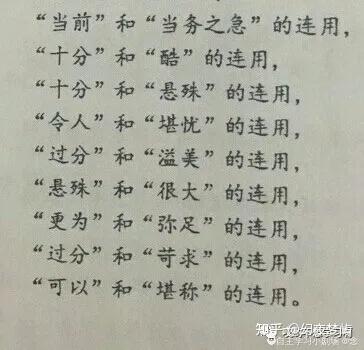 “当前”和“当务之急”的连用，
“十分”和“酷”的连用，
“十分”和“悬殊”的连用，
“令人”和“堪忧”的连用，
“过分”和“溢美”的连用，
“悬殊”和“很大”的连用，
“更为”和“弥足”的连用，
“过分”和“苛求”的连用，
“可以”和“堪称”的连用。
知乎
自主学习小剧场